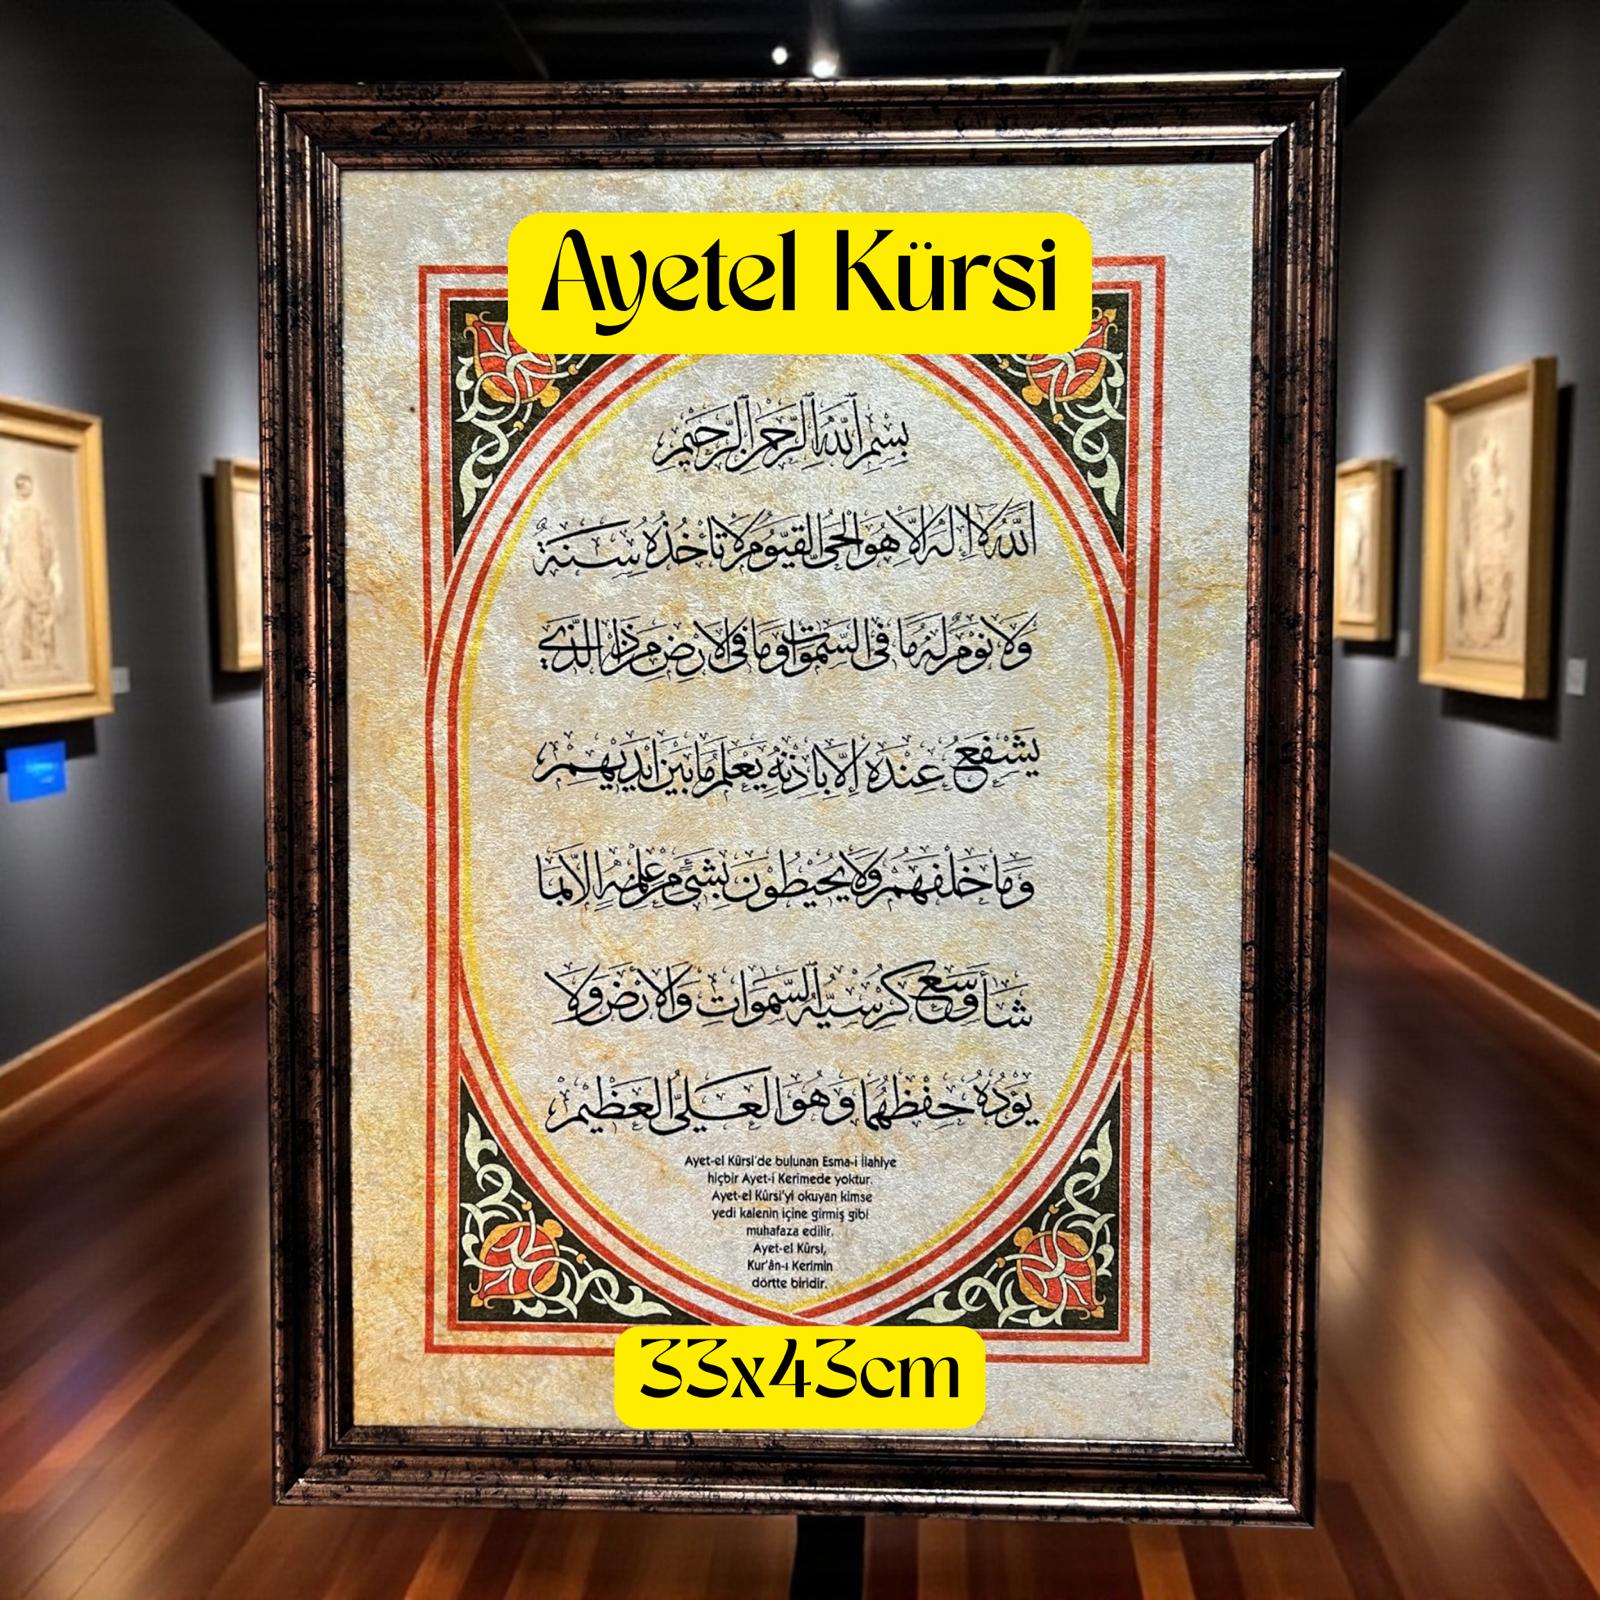 Ayetel Kürsi
بسم الله الرحمن الرحيم
الله لا اله الا هو الحي القيوم لا تاخذه سنة
ولا نوم له ما في السموات وما في الارض من ذا الذي
يشفع عنده الا باذنه يعلم ما بين ايديهم
وما خلفهم ولا يحيطون بشئ من علمه الا بما
شاء وسع كرسيه السموات والارض ولا
يؤده حفظهما وهو العلي العظيم
Ayet-el Kûrsi'de bulunan Esma-i İlahiye
hiçbir Ayet-i Kerimede yoktur.
Ayet-el Kûrsi'yi okuyan kimse
yedi kalenin içine girmiş gibi
muhafaza edilir.
Ayet-el Kûrsi,
Kur'ân-ı Kerimin
dörtte biridir.
33x43cm